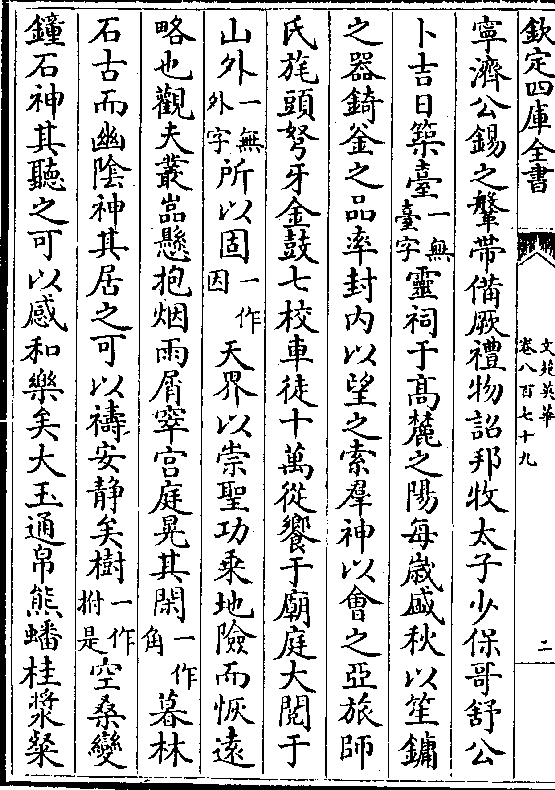 欽定四庫全書
文苑英華
卷八百七十九
二
寧濟公錫之鞶帶備厥禮物詔邦牧太子少保哥舒公
卜吉日築臺一無臺字靈祠于高麓之陽每歲盛秋以笙鏞
之器錡釜之品率封内以望之索羣神以會之亞旅師
氏旄頭弩牙金鼓七校車徒十萬從饗于廟庭大閱于
山外一無外字所以固一作因天界以崇聖功乘地險而恢遠
略也觀夫叢嵓懸抱烟雨屑窣宫庭晃其閑一作角暮林
石古而幽陰神其居之可以禱安静矣樹一作拊是空桑變
鐘石神其聽之可以感和樂矣大玉通帛熊蟠桂漿粢